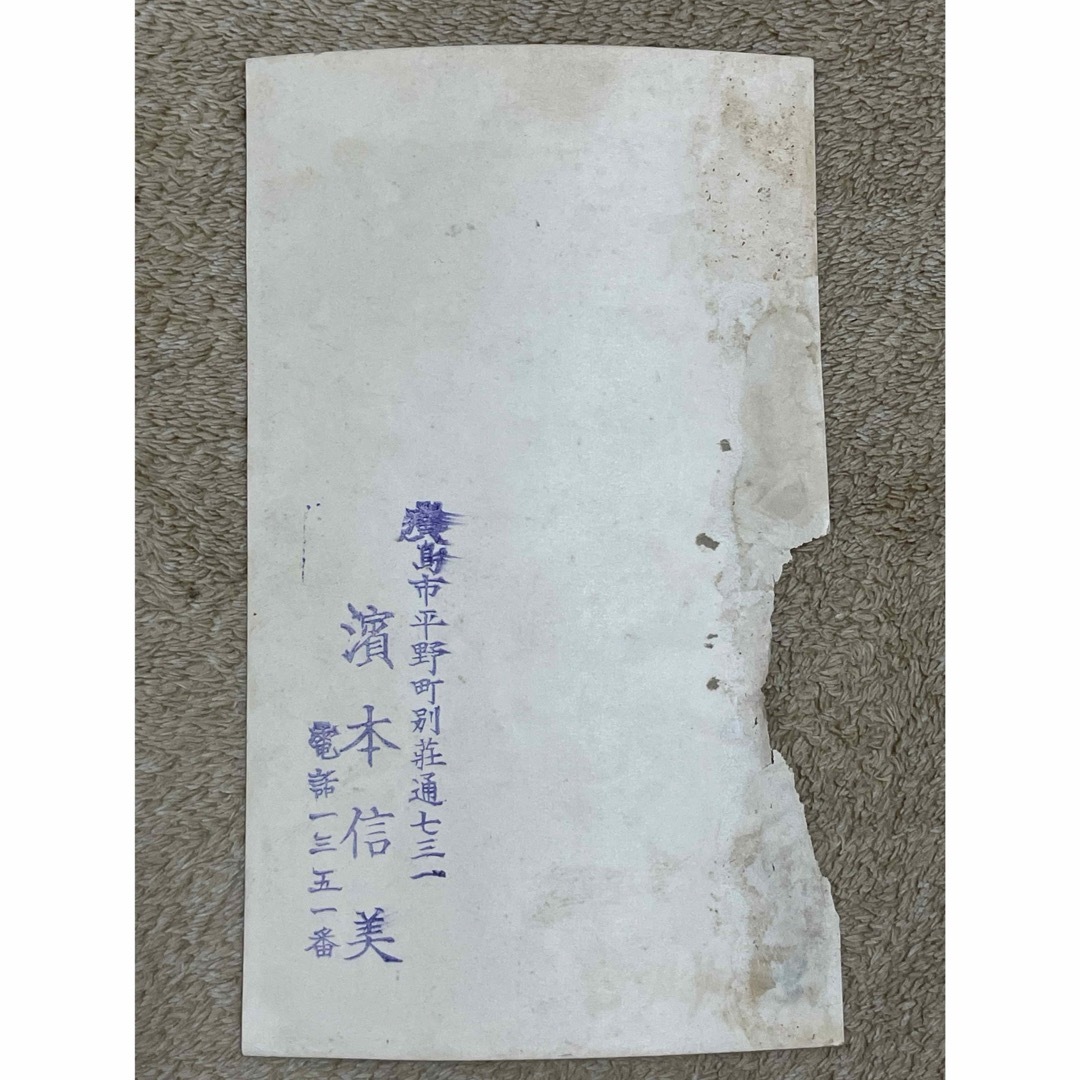 廣島市平野町別荘通七三一
濱本信美
電話一三五一番